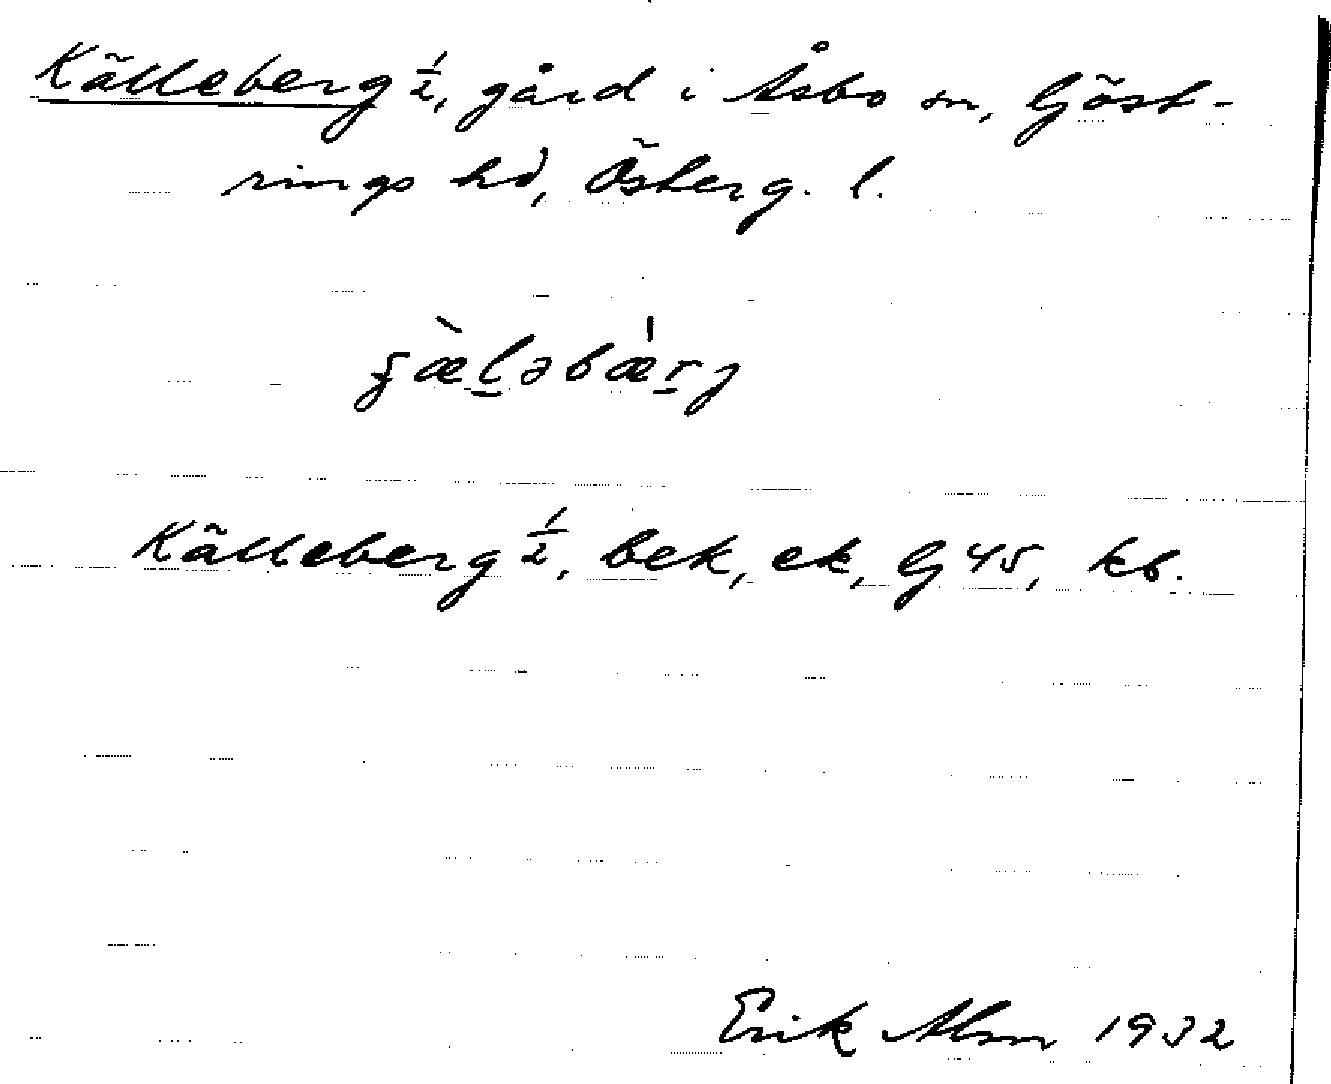 Källeberg ½, gård i Åsbo sn, Göst-
rings hd, Österg. l.
Källeberg ½, bek, ek, G 45, kb.
Erik Alm 1932